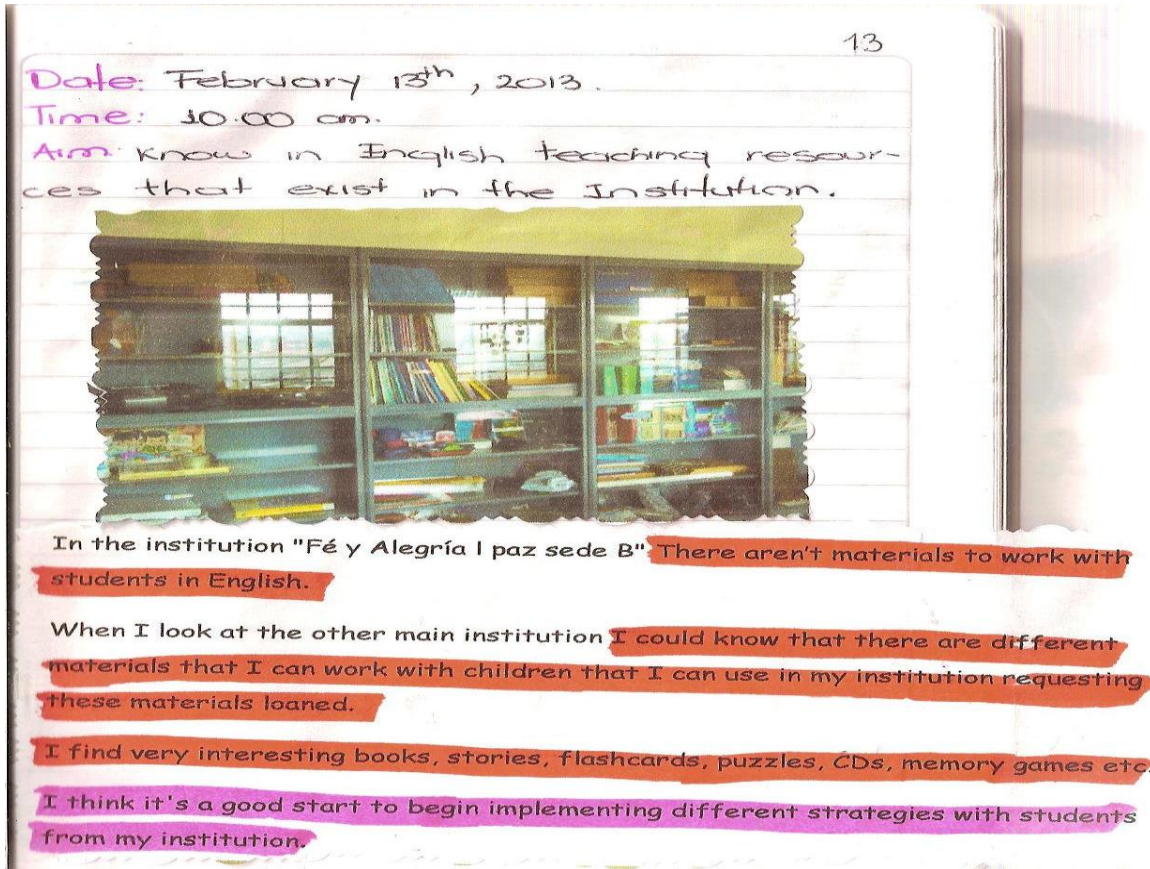 13
Date: February 13th, 2013.
Time: 10.00 am.
Aim: Know in English teaching resour-
ces that exist in the Institution.
In the institution "Fé y Alegría l paz sede B" There aren't materials to work with
students in English.
When I look at the other main institution I could know that there are different
materials that I can work with children that I can use in my institution requesting
these materials loaned.
I find very interesting books, stories, flashcards, puzzles, CDs, memory games etc.
I think it's a good start to begin implementing different strategies with students
from my institution.